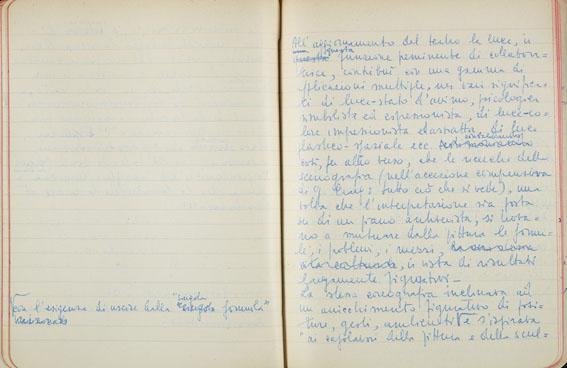 con l'esigenza di uscire dalla "singola formula"
All'aggiornamento del teatro la luce, in
questa funzione preminente di collabora=
trice, contribuì con una gamma di
applicazioni multiple, nei vari significa=
ti di luce-stato d'animo, psicologica
simbolista ed espressionista, di luce-co=
lore impressionista ed astratta, di luce
plastico-spaziale ecc.
così, per altro verso, che le ricerche della
scenografia (nell'accezione comprensiva
di G. Craig: tutto ciò che si vede), una
volta che l'interpretazione sia posta
su di un piano antiverista, si trova=
no a mutuare dalla pittura le formu=
le, i problemi, i mezzi,
in vista di risultati
largamente figurativi-
La stessa coreografia inclinava ad
un arricchimento figurativo di posi=
ture, gesti, ambienti e s'ispirava
"ai capolavori della pittura e della scul=